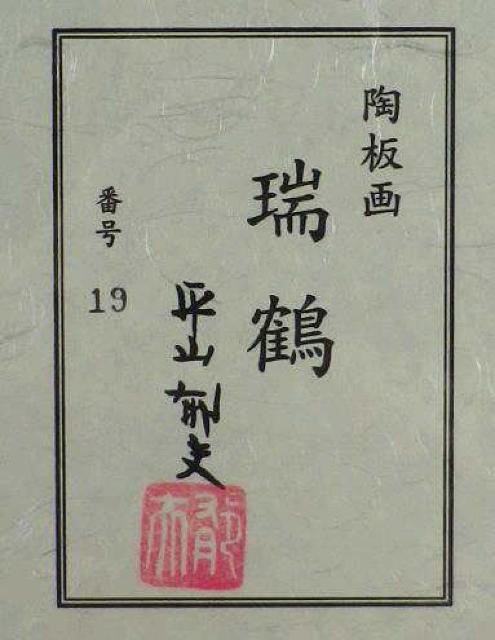 陶板画
瑞鶴
平山郁夫
郁夫
番号
19